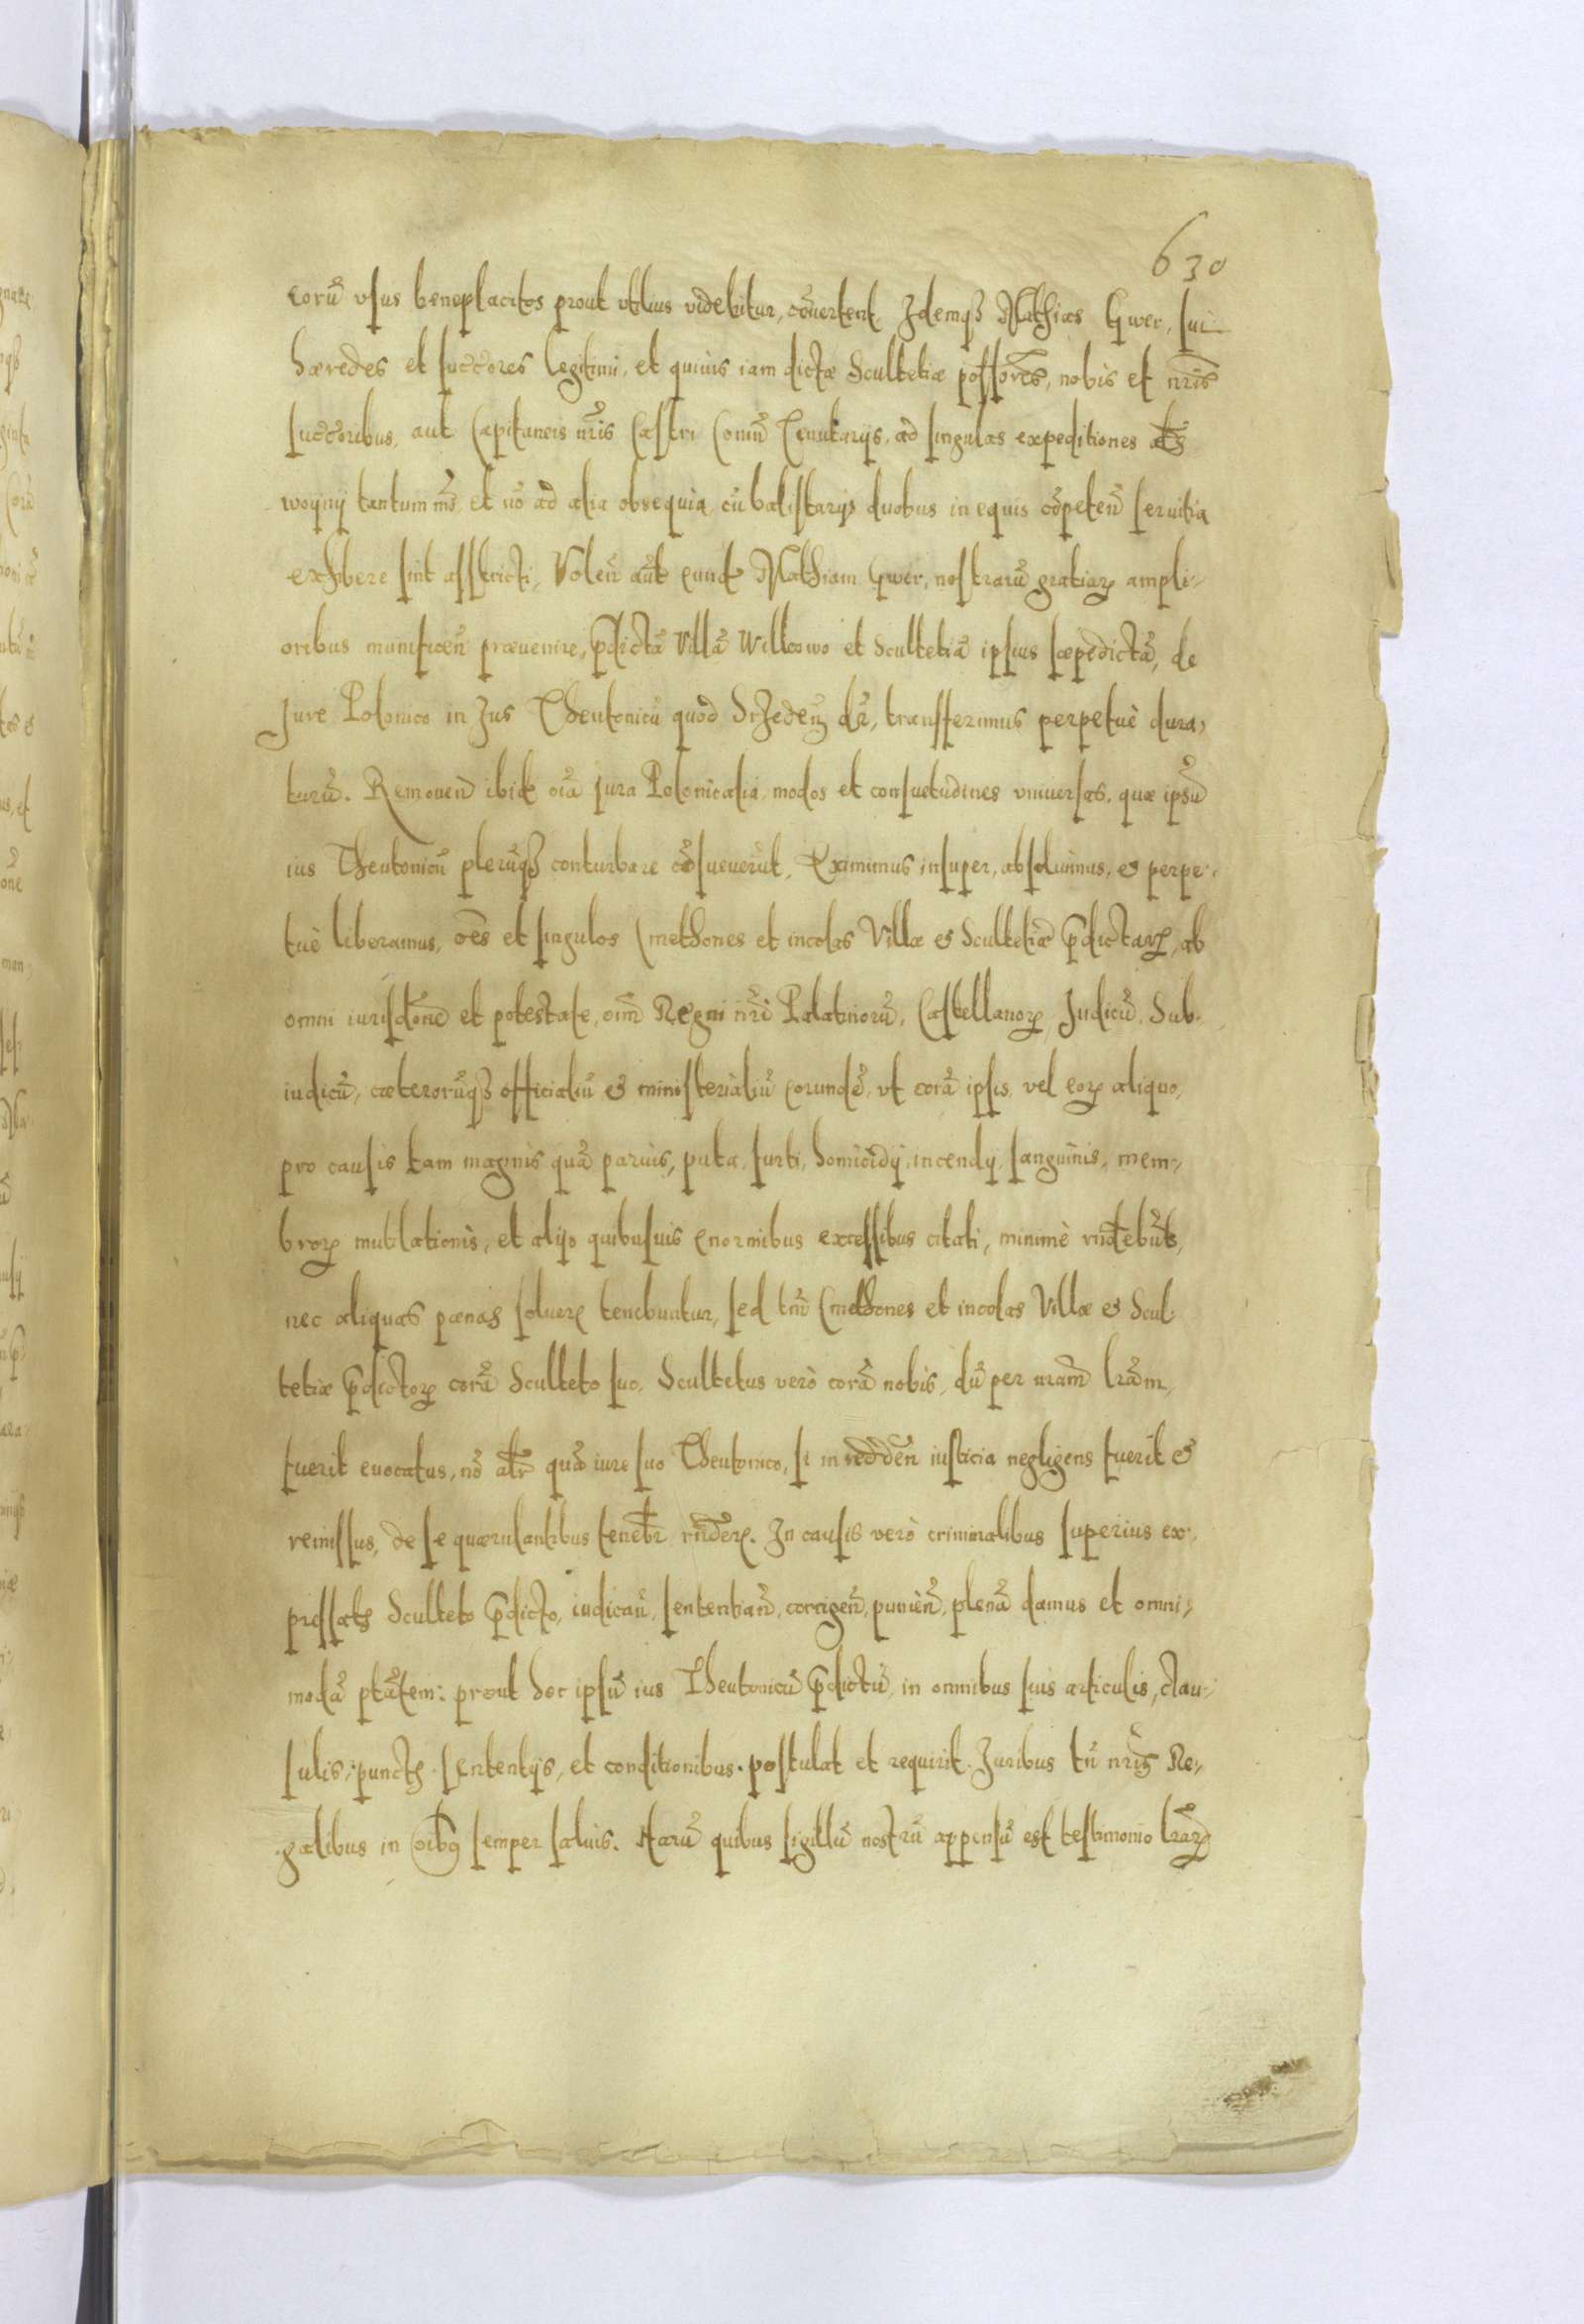 630
eorũ vsus beneplacitos prout vtilius videbitur, cõuertent. Idemqз Mathias Gwer, sui
hæredes et succores legitimi, et quiuis iam dictæ Scultetiæ possores, nobis et nris
succoribus, aut Capitaneis nris Castri Conin̄ Tenutarijs, ad singulas expeditiones als
woyny tantum mo et nõ ad alia obsequia, cũ balistarijs duobus in equis cõpeteñ seruitia
exhibere sint asstricti, Voleñ aũt eund Mathiam Gwer, nostrarũ gratiaꝝ ampli-
oribus munificeñ præuenire, p̃dictã Villã Wilkowo et Scultetiã ipsius sæpedictã, de
Jure Polonico in Jus Theutonicũ quod Srzedeñ dr̃, transferimus perpetuè dura-
turũ. Remoueñ ibid oĩa jura Polonicalia, modos et consuetudines vniuersas, quæ ipsũ
ius Theutonicũ plerũqз conturbare cõsueuerũt, Eximimus insuper, absoluimus, & perpe-
tuè liberamus, oẽs et singulos Cmethones et incolas Villæ & Scultetiæ p̃dictaꝝ, ab
omni iurisdoñe et potestate, oĩm Regni nrĩ Palatinorũ, Castellanoꝝ, Judicũ, Sub-
iudicũ, cæterorũqз officialiũ & ministerialiũ eorundẽ, vt corã ipsis, vel eoꝝ aliquo,
pro causis tam magnis quã paruis, puta, furti, homicidij, incendij, sanguinis, mem-
broꝝ mutilationis, et alijs quibusuis enormibus excessibus citati, minimè rñdebũt,
nec aliquas pænas soluere tenebuntur, sed tm̃ Cmethones et incolas Villæ & Scul-
tetiæ p̃dictoꝝ corã Sculteto suo, Scultetus verò corã nobis, dũ per nram̃ lrãm,
fuerit euocatus, nõ alr̃ quã iure suo Theutonico, si in reddeñ iusticia negligens fuerit &
remissus, de se quærulantibus tenebr̃ rñdere. In causis verò criminalibus superius ex-
pressatis Sculteto p̃dicto, iudicañ, sententiañ, corrigeñ, punieñ, plenã damus et omni-
modã ptãtem: prout hoc ipsũ ius Theutonicũ p̃dictũ, in omnibus suis articulis, clau-
sulis, punctis, sententijs, et conditionibus postulat et requirit. Juribus tñ nris Re-
galibus in oĩbꝰ semper saluis. Harũ quibus sigillũ nostrũ appensũ est testimonio lrãꝝ